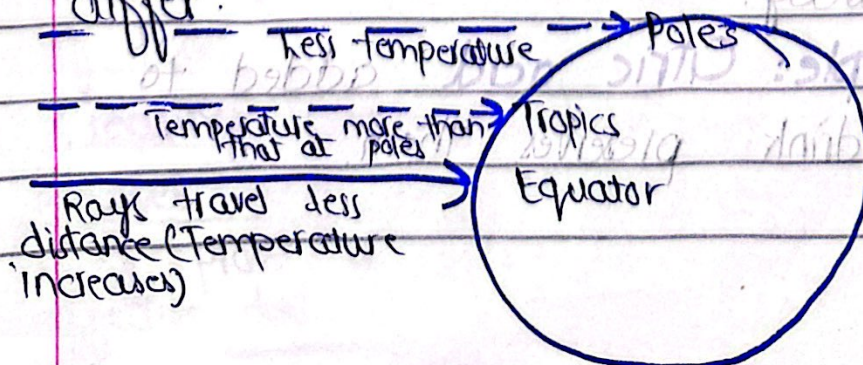 differ.
Less temperature Poles
Temperature more than Tropics
that at poles
Equator
Rays travel less
distance (Temperature
increases)